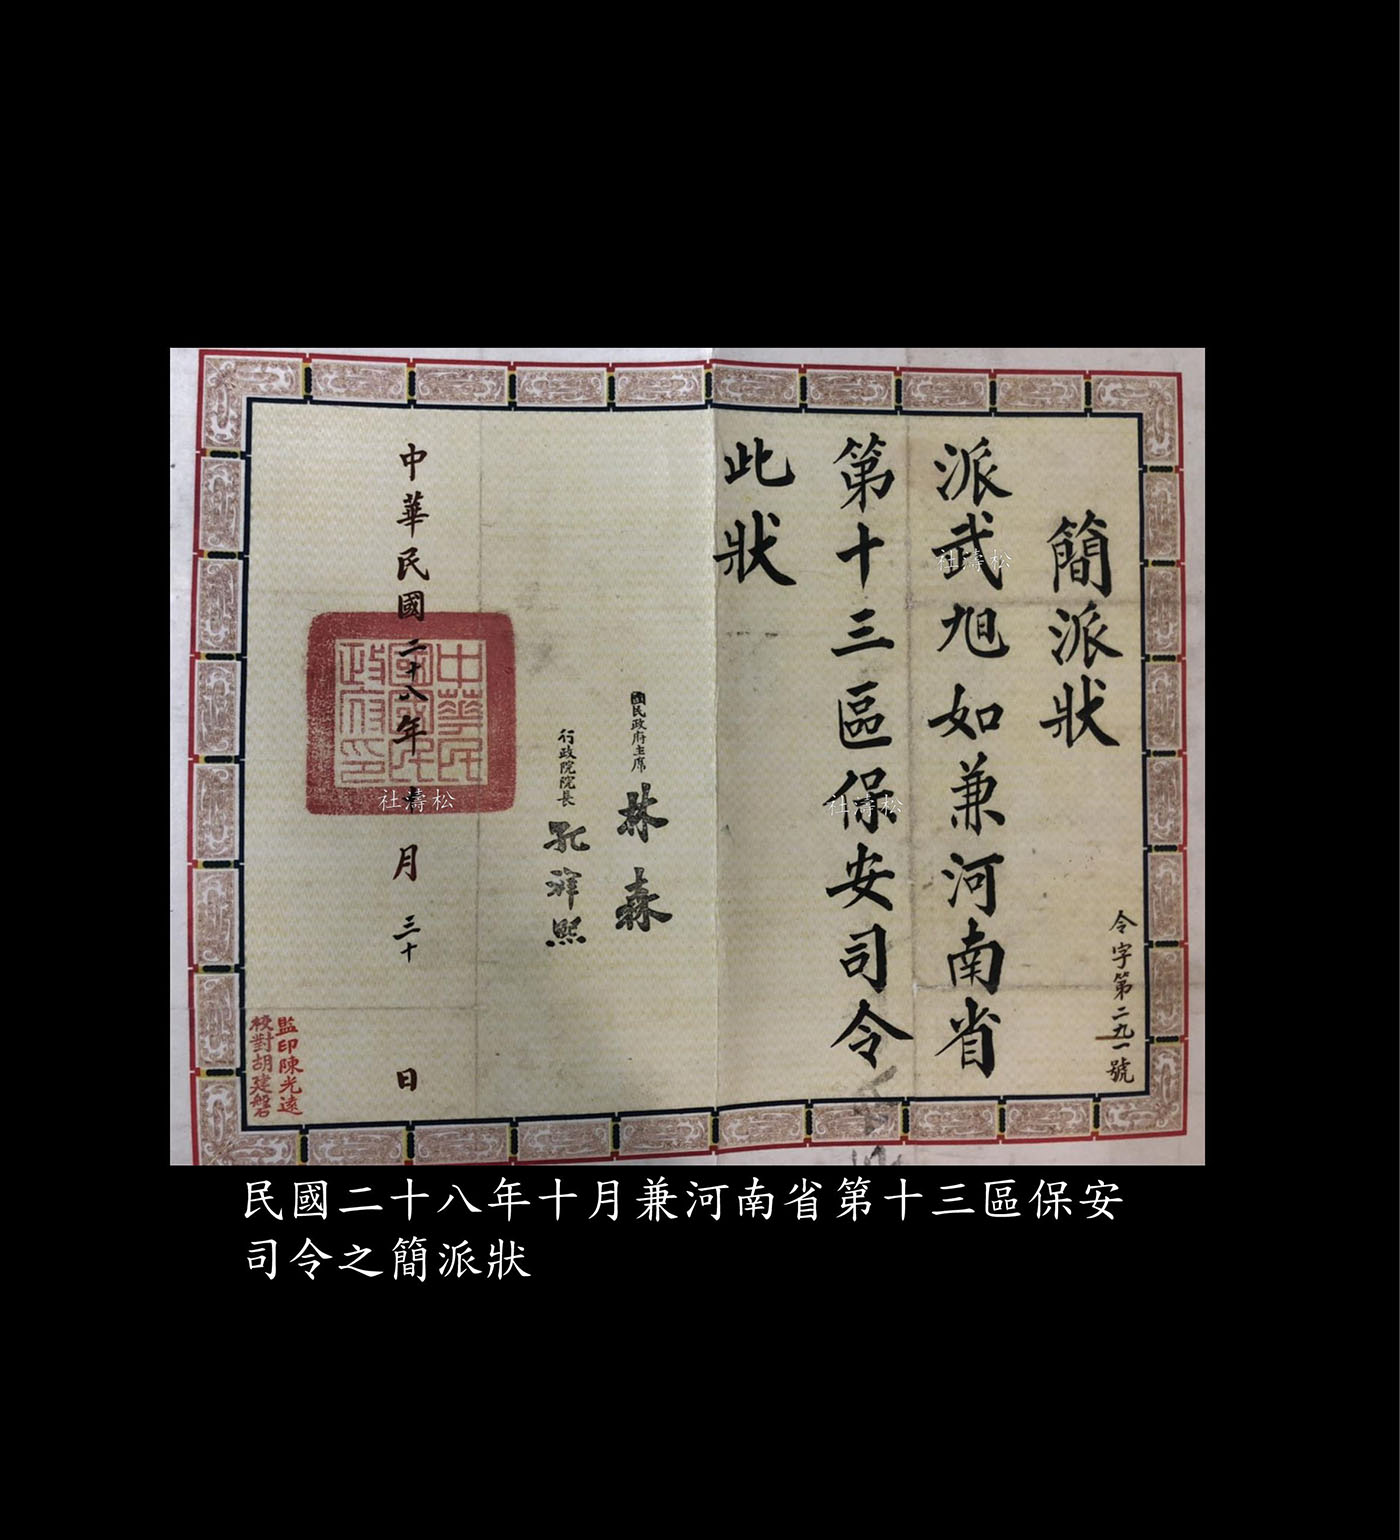 簡派狀
派武旭如兼河南省
第十三區保安司令
此狀
令字第二九一號
國民政府主席 林森
行政院院長 孔祥熙
中華民國二十八年十月三十日
中華民國國民政府印
監印陳光遠
校對胡建磐
社濤松
社濤松
社濤松
民國二十八年十月兼河南省第十三區保安
司令之簡派狀